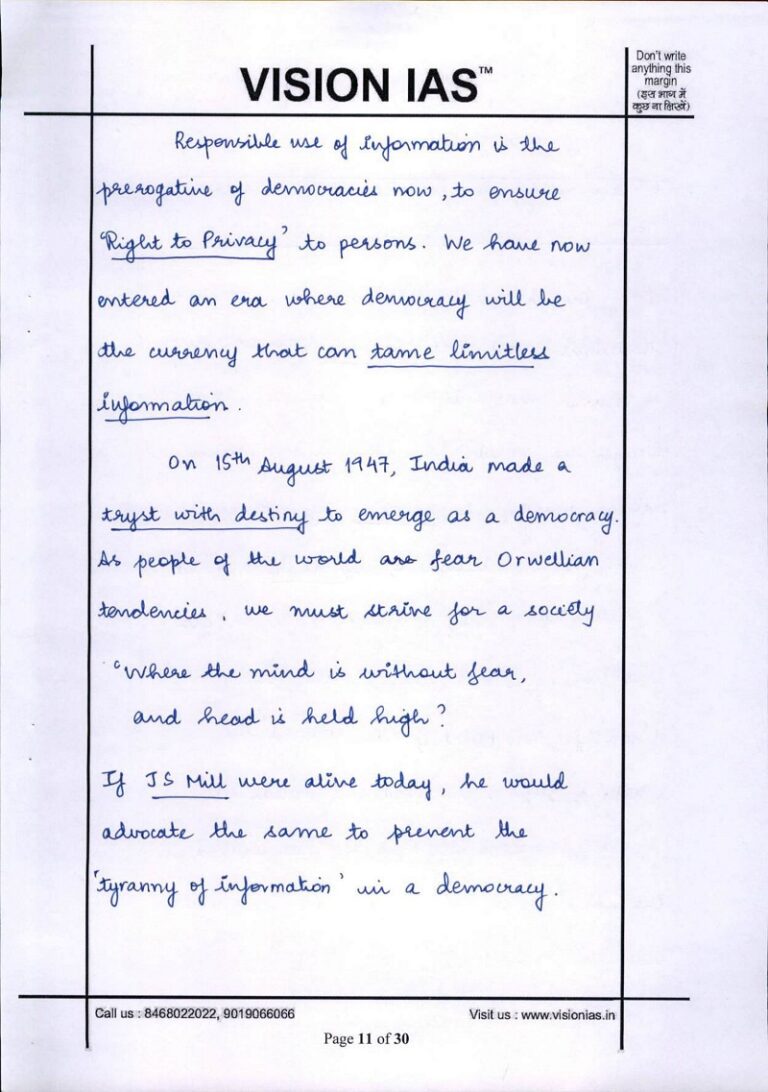 VISION IAS™
Don't write
anything this
margin
(इस भाग में
कुछ ना लिखें)
Responsible use of information is the
prerogative of democracies now, to ensure
'Right to Privacy' to persons. We have now
entered an era where democracy will be
the currency that can tame limitless
information.
On 15th August 1947, India made a
tryst with destiny to emerge as a democracy.
As people of the world are fear Orwellian
tendencies, we must strive for a society
"Where the mind is without fear,
and head is held high"
If JS Mill were alive today, he would
advocate the same to prevent the
'tyranny of information' in a democracy.
Call us : 8468022022, 9019066066
Visit us : www.visionias.in
Page 11 of 30